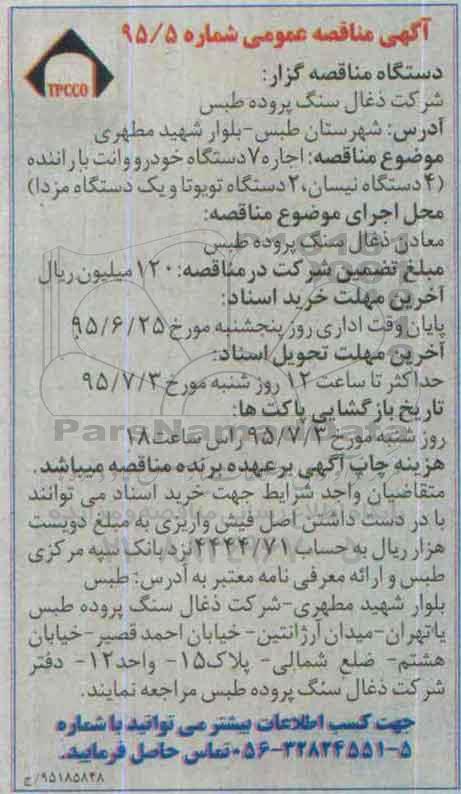 آگهی مناقصه عمومی شماره ۹۵/۵
TPCCO
دستگاه مناقصه گزار:
شرکت ذغال سنگ پروده طبس
آدرس: شهرستان طبس-بلوار شهید مطهری
موضوع مناقصه: اجاره ۷ دستگاه خودرو وانت با راننده
(۴ دستگاه نیسان، ۲ دستگاه تویوتا و یک دستگاه مزدا)
محل اجرای موضوع مناقصه:
معادن ذغال سنگ پروده طبس
مبلغ تضمین شرکت در مناقصه: ۱۲۰ میلیون ریال
آخرین مهلت خرید اسناد:
پایان وقت اداری روز پنجشنبه مورخ ۹۵/۶/۲۵
آخرین مهلت تحویل اسناد:
حداکثر تا ساعت ۱۲ روز شنبه مورخ ۹۵/۷/۳
تاریخ بازگشایی پاکت ها:
روز شنبه مورخ ۹۵/۷/۳ راس ساعت ۱۸
ParsNamadData
هزینه چاپ آگهی بر عهده برنده مناقصه میباشد.
متقاضیان واجد شرایط جهت خرید اسناد می توانند
با در دست داشتن اصل فیش واریزی به مبلغ دویست
هزار ریال به حساب ۴۴۴۴/۷۱ نزد بانک سپه مرکزی
طبس و ارائه معرفی نامه معتبر به آدرس: طبس
بلوار شهید مطهری-شرکت ذغال سنگ پروده طبس
یا تهران-میدان آرژانتین-خیابان احمد قصیر-خیابان
هشتم- ضلع شمالی- پلاک ۱۵- واحد ۱۲- دفتر
شرکت ذغال سنگ پروده طبس مراجعه نمایند.
جهت کسب اطلاعات بیشتر می توانید با شماره
۰۵۶-۳۲۸۲۴۵۵۱-۵ تماس حاصل فرمایید.
۹۵۱۸۵۸۴۸/ج